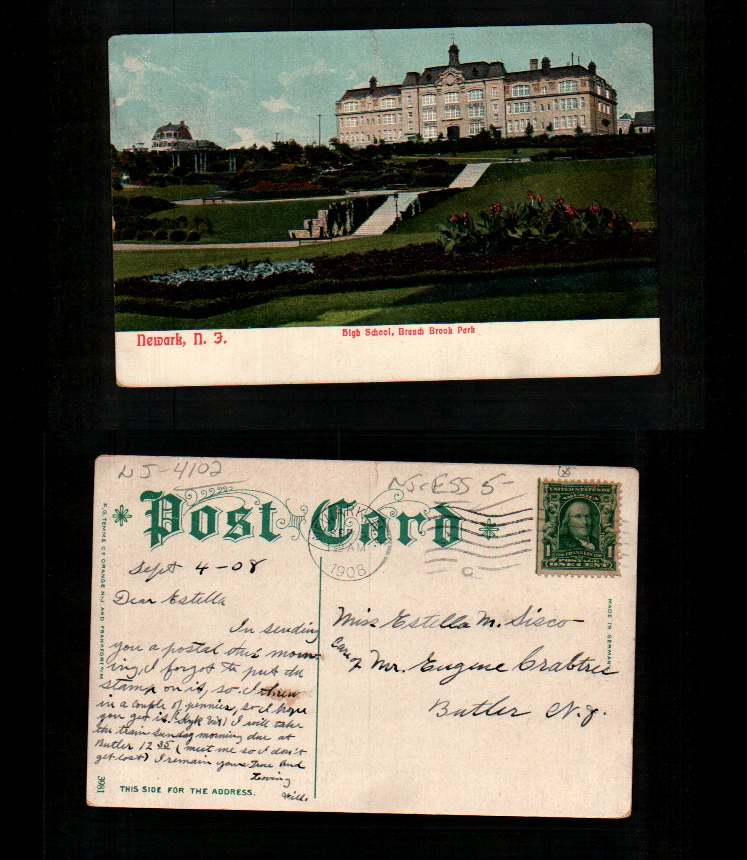 Newark, N. J.
High School, Branch Brook Park
NJ-4102
NJ-ESS 5-
Post Card
NEWARK
AM
1908
UNITED STATES OF AMERICA
1 1
FRANKLIN
POSTAGE
ONE CENT
F. G. TEMME CY ORANGE N.J. AND FRANKFORT A/M.
MADE IN GERMANY
Sept 4 - 08
Dear Estella
In sending
you a postal this morn-
ing, I forgot to put the
stamp on it, so I threw
in a couple of pennies, so I hope
you get it. I will take
the train sunday morning due at
Butler 12 35 (meet me so I don't
get lost) I remain yours True and
Loving
Will.
Miss Estella M. Sisco
Care of Mr. Eugene Crabtree
Butler N.J.
3981
THIS SIDE FOR THE ADDRESS.